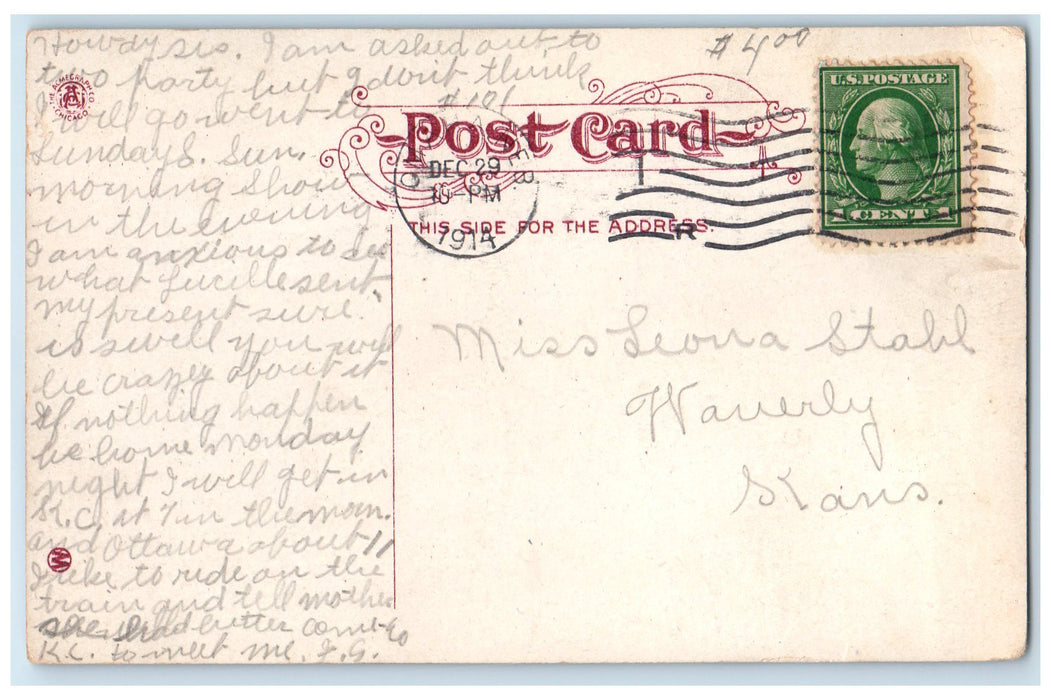 Howdy sis. I am asked out to
two party but I don't think
I will go went to
Sunday S. Sun.
morning Show
in the evening
I am anxious to see
what Lucille sent
my present sure.
is swell you will
be crazy about it
If nothing happen
be home Monday
night I will get in
K.C. at 7 in the morn.
and Ottawa about 11
I like to ride on the
train and tell mother
she had better come to
K.C. to meet me. F.G.
#4 00
#101
THE ACMEGRAPH CO.
CHICAGO
Post Card
THIS SIDE FOR THE ADDRESS.
DEC 29
10-PM
1914
R
U.S. POSTAGE
1 CENT 1
Miss Leona Stahl
Waverly
Kans.